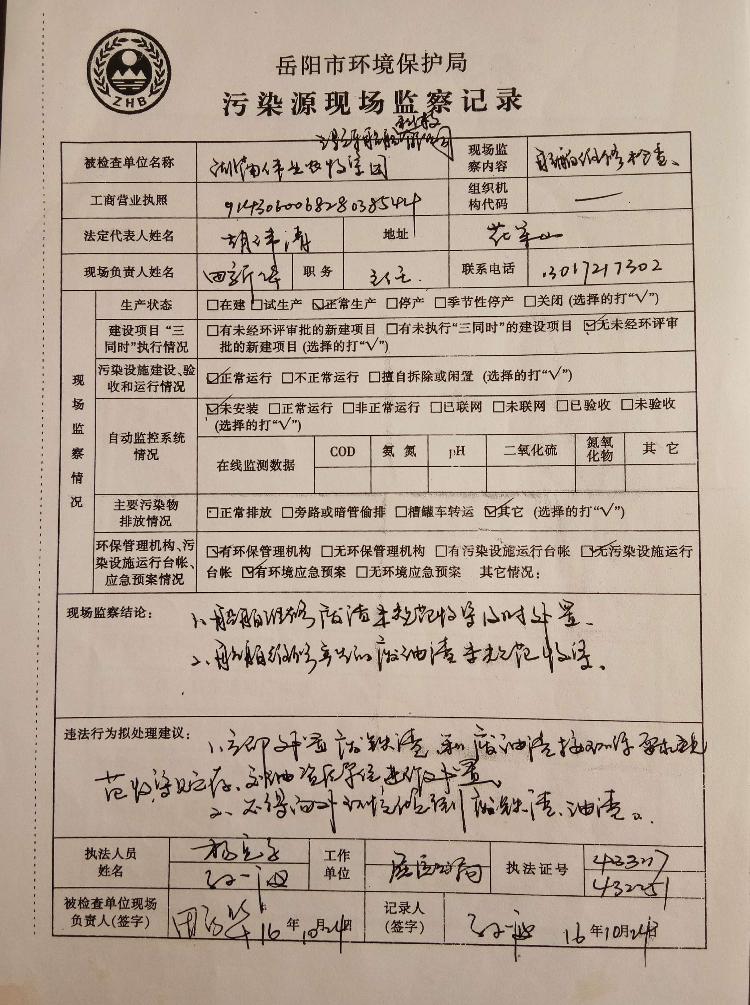 ZHB
岳阳市环境保护局
污染源现场监察记录
被检查单位名称
现场监察内容 船舶维修检查、
工商营业执照
组织机构代码 —
法定代表人姓名
地址
现场负责人姓名 职务 主任 联系电话 13017217302
现场监察情况
生产状态 □在建 □试生产 ☑正常生产 □停产 □季节性停产 □关闭 (选择的打“√”)
建设项目“三同时”执行情况 □有未经环评审批的新建项目 □有未执行“三同时”的建设项目 ☑无未经环评审批的新建项目 (选择的打“√”)
污染设施建设、验收和运行情况 ☑正常运行 □不正常运行 □擅自拆除或闲置 (选择的打“√”)
自动监控系统情况 ☑未安装 □正常运行 □非正常运行 □已联网 □未联网 □已验收 □未验收 (选择的打“√”)
在线监测数据 COD 氨氮 pH 二氧化硫 氮氧化物 其它
主要污染物排放情况 □正常排放 □旁路或暗管偷排 □槽罐车转运 ☑其它 (选择的打“√”)
环保管理机构、污染设施运行台帐、应急预案情况 ☑有环保管理机构 □无环保管理机构 □有污染设施运行台帐 ☑无污染设施运行台帐 ☑有环境应急预案 □无环境应急预案 其它情况:
现场监察结论: 1、船舶维修废渣未规范收集及时处置、
2、船舶维修产生的废油渣未规范收集。
违法行为拟处理建议: 1、立即处置废铁渣和废油渣按环保要求规
范收集贮存、交由资质单位进行处置。
2、不得向外环境倾倒废铁渣、油渣。
执法人员姓名 工作单位 执法证号 423317
432251
被检查单位现场负责人(签字) 16年10月24日
记录人(签字) 16年10月24日